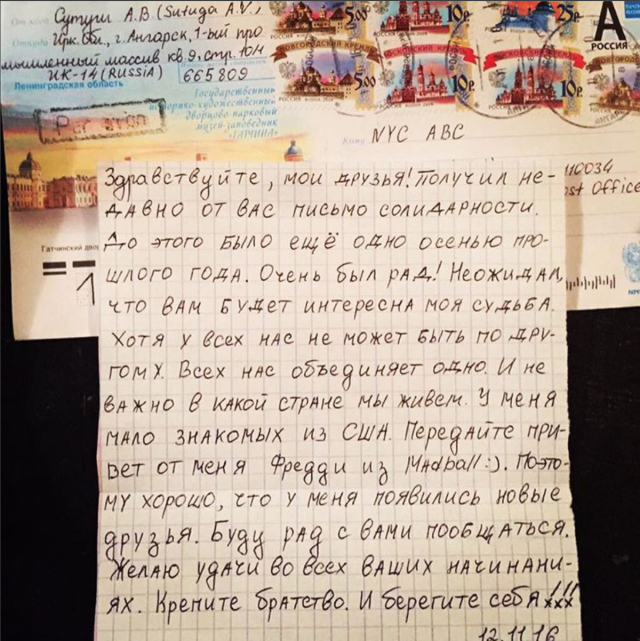 Сутуги А.В (Sutuga A.V.)
Ирк. обл., г. Ангарск, 1-ый про
мышленный массив кв.9, стр. 10Н
ИК-14 (RUSSIA)
665809
Ленинградская область
Par avion
Государственный
историко-художественный
дворцово-парковый
музей-заповедник
"ГАТЧИНА"
5,00
10р
25р
НОВГОРОДСКИЙ КРЕМЛЬ
РОССИЯ
5,00
10р
А
РОССИЯ
NYC ABC
110034
ost Office
Гатчинский
Здравствуйте, мои друзья! Получил не-
давно от вас письмо солидарности.
До этого было ещё одно осенью про-
шлого года. Очень был рад! Неожидал,
что вам будет интересна моя судьба.
Хотя у всех нас не может быть по дру-
гому. Всех нас объединяет одно. И не
важно в какой стране мы живем. У меня
мало знакомых из США. Передайте при-
вет от меня Фредди из Madball :). Поэто-
му хорошо, что у меня появились новые
друзья. Буду рад с вами пообщаться.
Желаю удачи во всех ваших начинани-
ях. Крепите братство. И берегите себя !!!
xxx
12.11.16